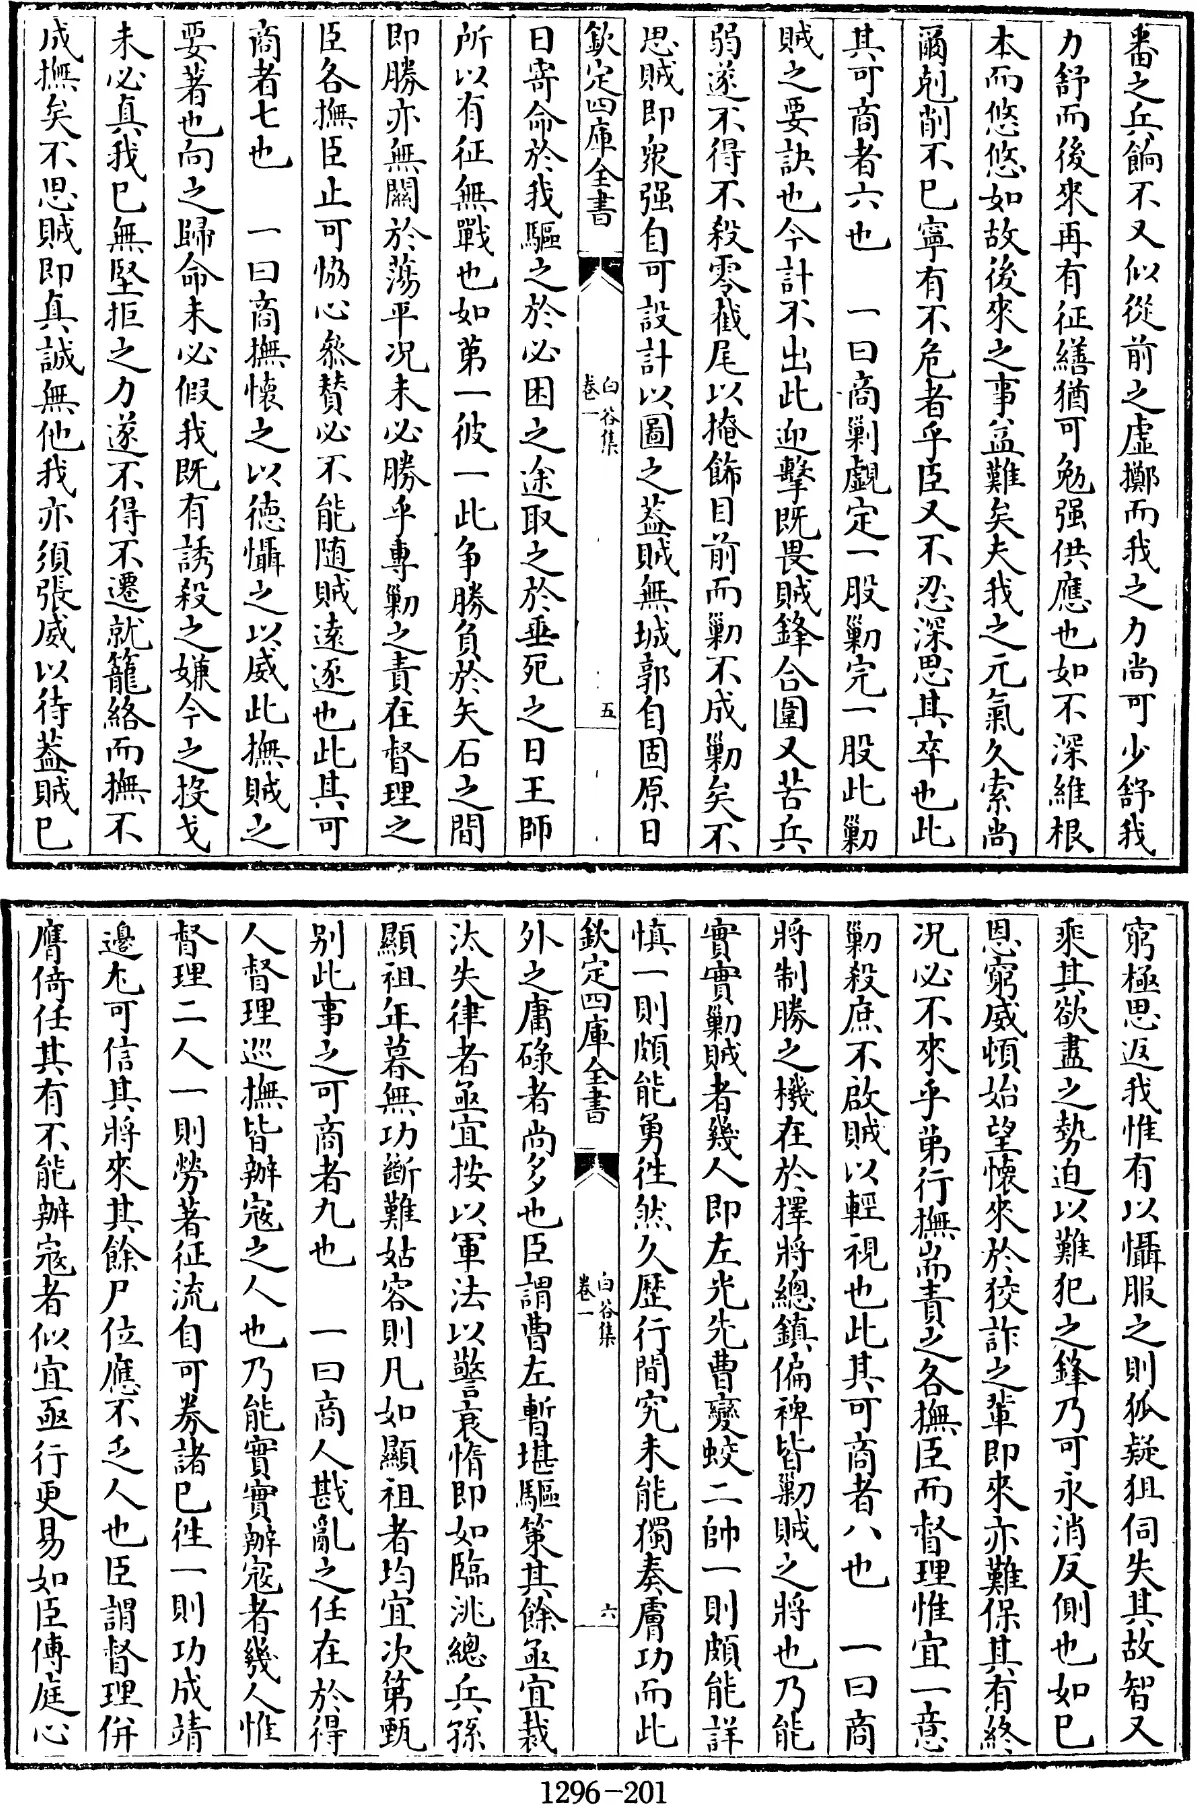 畨之兵餉不又似從前之虚擲而我之力尚可少舒我
力舒而後來再有征繕猶可勉强供應也如不深維根
本而悠悠如故後來之事益難矣夫我之元氣久索尚
爾剋削不已寧有不危者乎臣又不忍深思其卒也此
其可商者六也　一曰商剿覷定一股剿完一股此剿
賊之要訣也今計不出此迎擊既畏賊鋒合圍又苦兵
弱遂不得不殺零截尾以掩飾目前而剿不成剿矣不
思賊即衆强自可設計以圖之葢賊無城郭自固原日
欽定四庫全書
白谷集
卷一
五
日寄命於我驅之於必困之途取之於垂死之日王師
所以有征無戰也如第一彼一此争勝負於矢石之間
即勝亦無關於蕩平况未必勝乎專剿之責在督理之
臣各撫臣止可恊心叅賛必不能随賊遠逐也此其可
商者七也　一曰商撫懷之以德懾之以威此撫賊之
要著也向之歸命未必假我既有誘殺之嫌今之投戈
未必真我已無堅拒之力遂不得不遷就籠絡而撫不
成撫矣不思賊即真誠無他我亦須張威以待葢賊已
窮極思返我惟有以懾服之則狐疑狙伺失其故智又
乘其欲盡之勢迫以難犯之鋒乃可永消反側也如已
恩窮威頓始望懷來於狡詐之輩即來亦難保其有終
况必不來乎第行撫耑責之各撫臣而督理惟宜一意
剿殺庶不啟賊以輕視也此其可商者八也　一曰商
將制勝之機在於擇將總鎮偏裨皆剿賊之將也乃能
實實剿賊者幾人即左光先曹變蛟二帥一則頗能詳
慎一則頗能勇往然久歴行間究未能獨奏膚功而此
欽定四庫全書
白谷集
卷一
六
外之庸碌者尚多也臣謂曹左暫堪驅策其餘亟宜裁
汰失律者亟宜按以軍法以警衰惰即如臨洮總兵孫
顯祖年暮無功斷難姑容則凡如顯祖者均宜次第甄
别此事之可商者九也　一曰商人戡亂之任在於得
人督理巡撫皆辦寇之人也乃能實實辦寇者幾人惟
督理二人一則勞著征流自可券諸已徃一則功成靖
邊尤可信其將來其餘尸位應不乏人也臣謂督理併
膺倚任其有不能辦寇者似宜亟行更易如臣傅庭心
1296-201